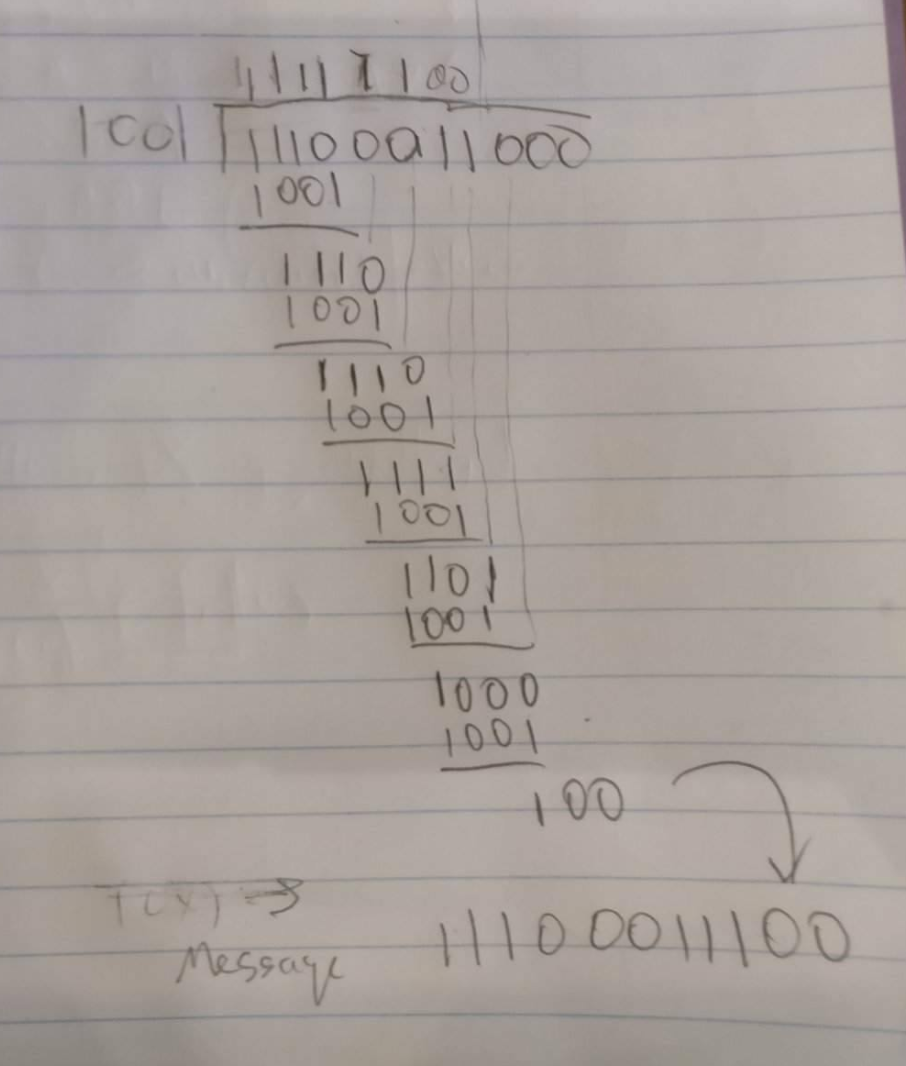 11111100
1001 11100011000
1001
1110
1001
1110
1001
1111
1001
1101
1001
1000
1001
100
T(x) →
Message 11100011100